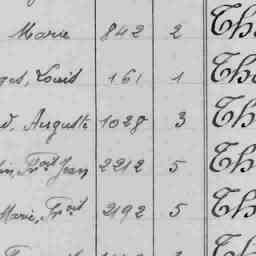 Marie 842 2 Th
ges, Louis 161 1 Th
d, Auguste 1028 3 Th
in, Frçois Jean 2212 5 Th
Marie, Frçois 2192 5 Th
Th